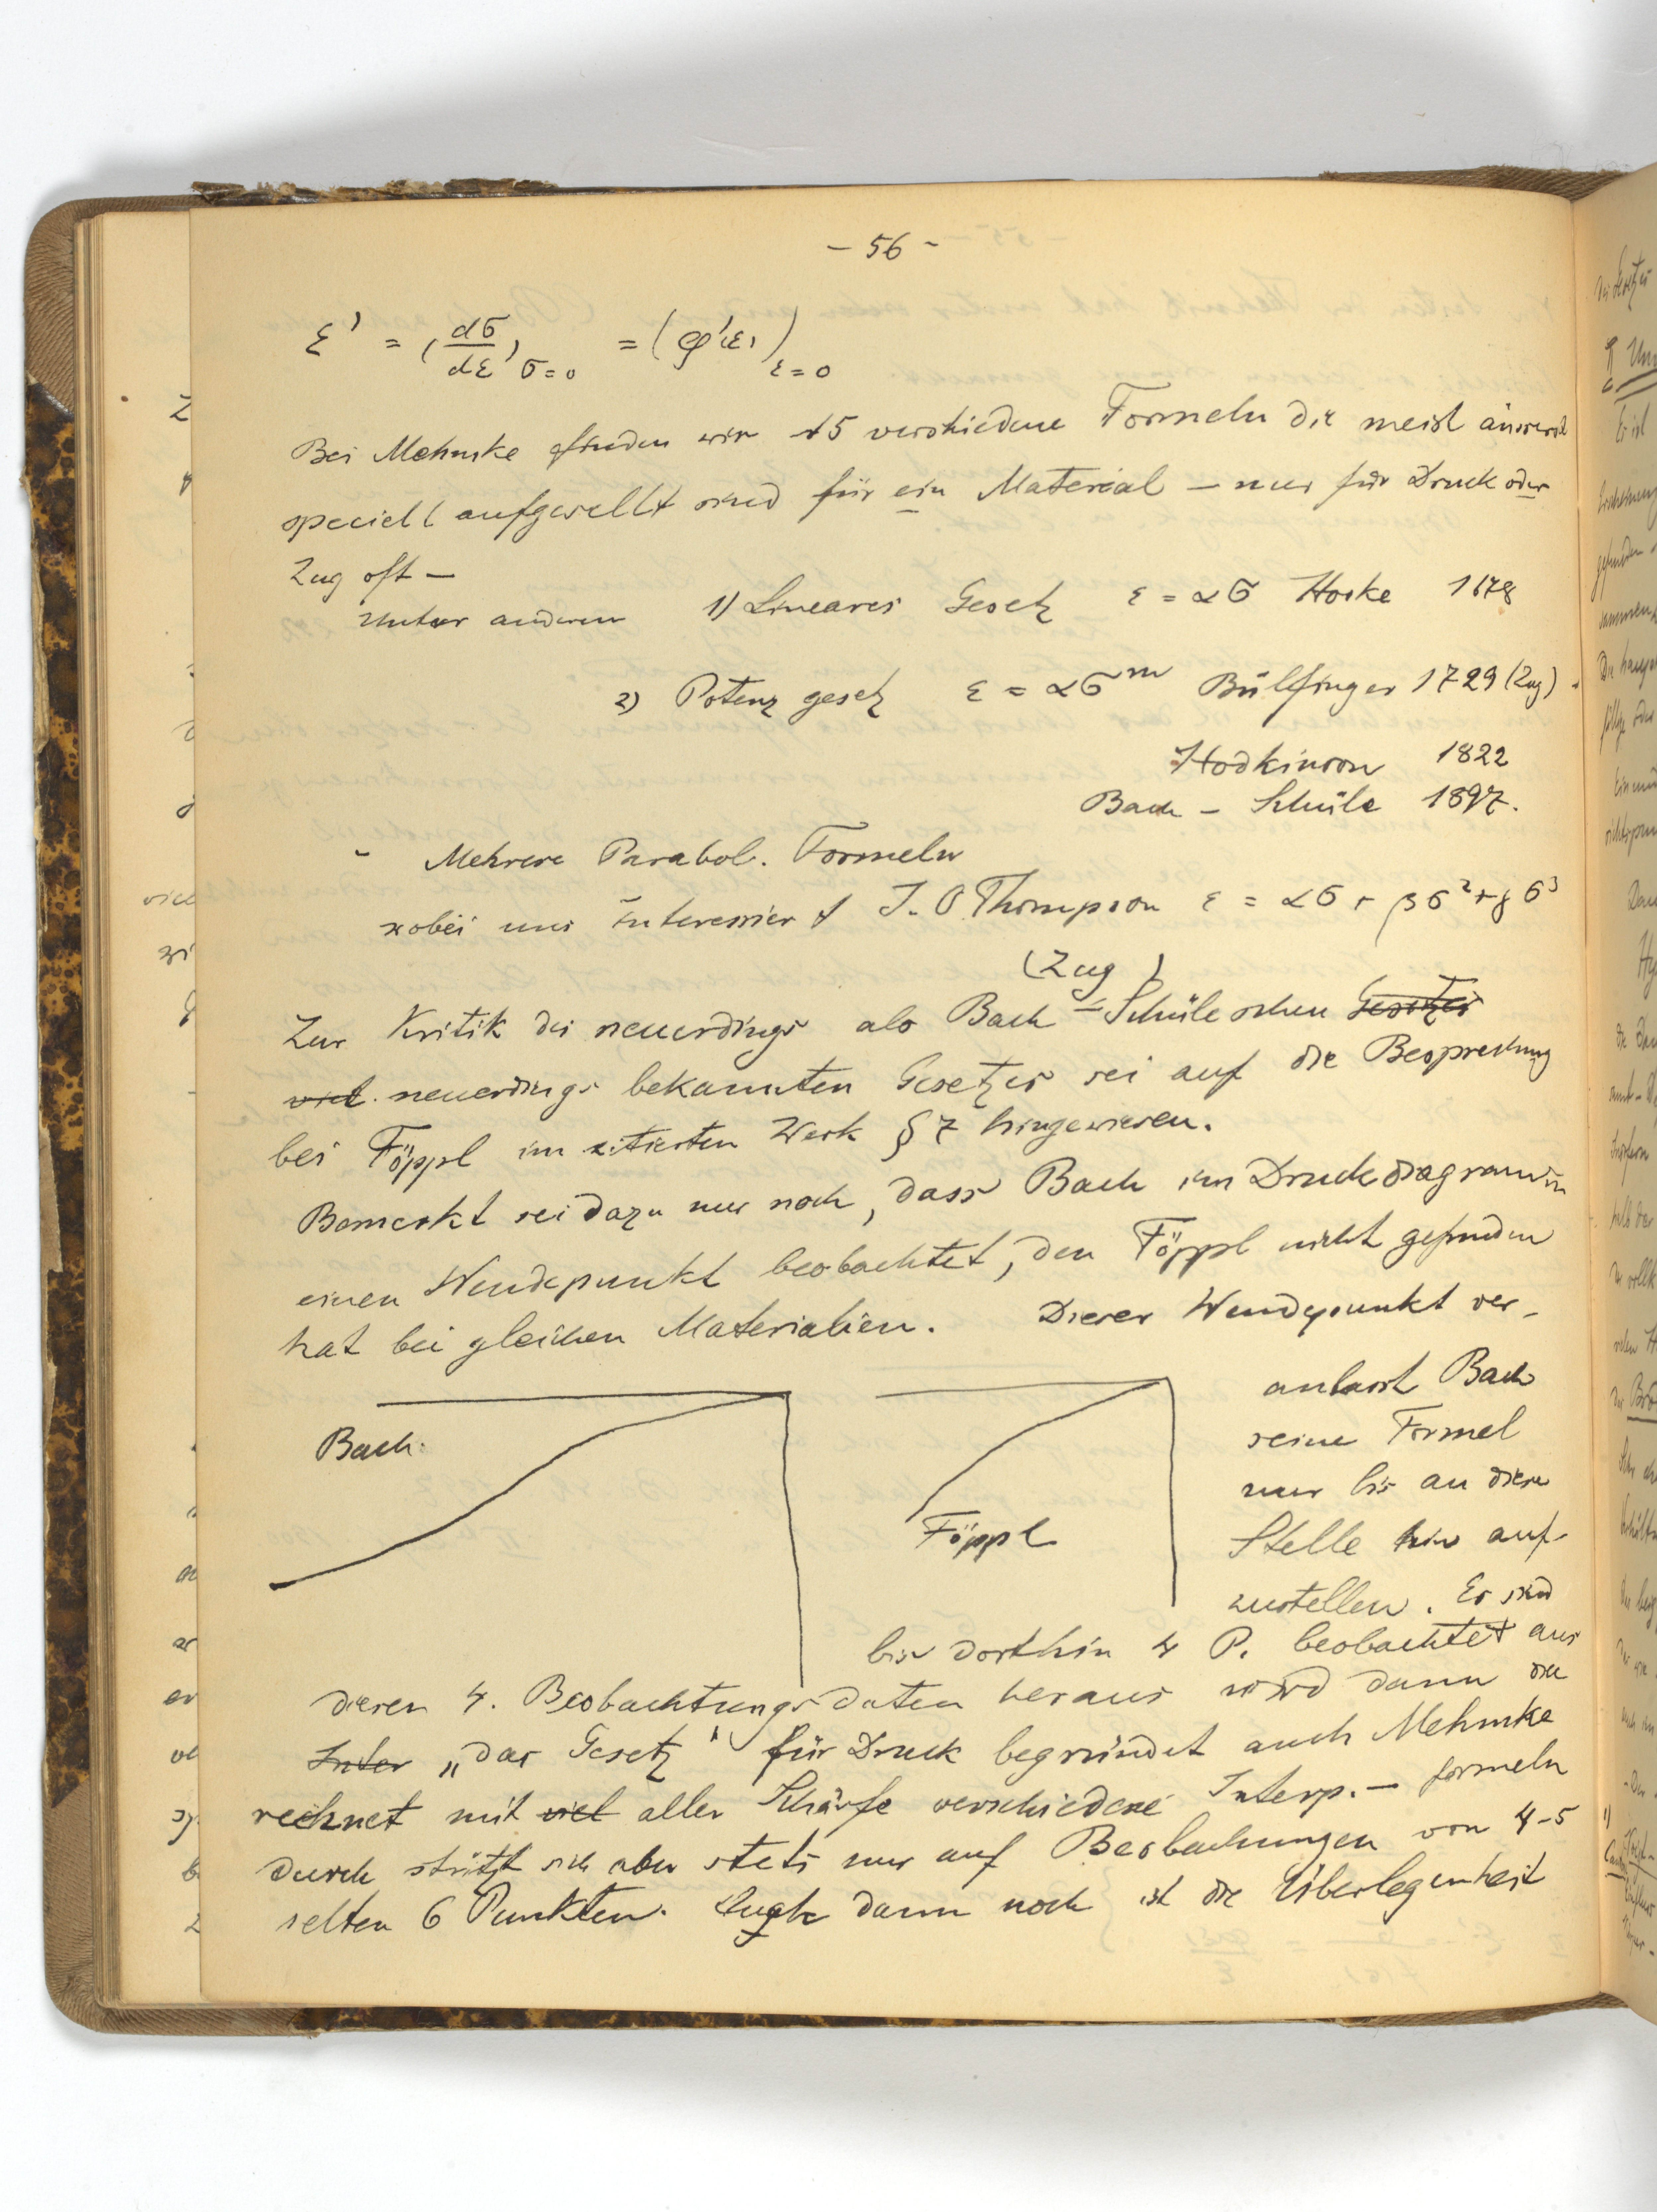 - 56 -
ε' = (dσ/dε)σ=0 = (φ'(ε))ε=0
Bei Mehmke finden wir 15 verschiedene Formeln die meist äusserst
speciell aufgestellt sind für ein Material — nur für Druck oder
Zug oft —
Unter anderen 1) Lineares Gesetz ε = ασ Hooke 1678
2) Potenz gesetz ε = ασ^m Bülfinger 1729 (Zug)
Hodkinson 1822
Bach - Schüle 1897.
- Mehrere Parabol. Formeln
wobei uns interessiert J. O. Thompson ε = ασ + βσ² + γσ³
(Zug)
Zur Kritik des neuerdings als Bach - Schüleschen Gesetzes
viel neuerdings bekannten Gesetzes sei auf die Besprechung
bei Föppl im zitierten Werk § 7 hingewiesen.
Bemerkt sei dazu nur noch, dass Bach im Druckdiagramm
einen Wendepunkt beobachtet, den Föppl nicht gefunden
hat bei gleichen Materialien. Dieser Wendepunkt ver-
anlasst Bach
seine Formel
nur bis an diese
Stelle hin auf-
zustellen. Es sind
Bach.
Föppl
bis dorthin 4 P. beobachtet aus
diesen 4. Beobachtungsdaten heraus wird dann die
Inter „das Gesetz" für Druck begründet auch Mehmke
rechnet mit viel aller Schärfe verschiedene Interp. - formeln
durch stützt sich aber stets nur auf Beobachungen von 4-5
selten 6 Punkten. Auch dann noch ist die Überlegenheit